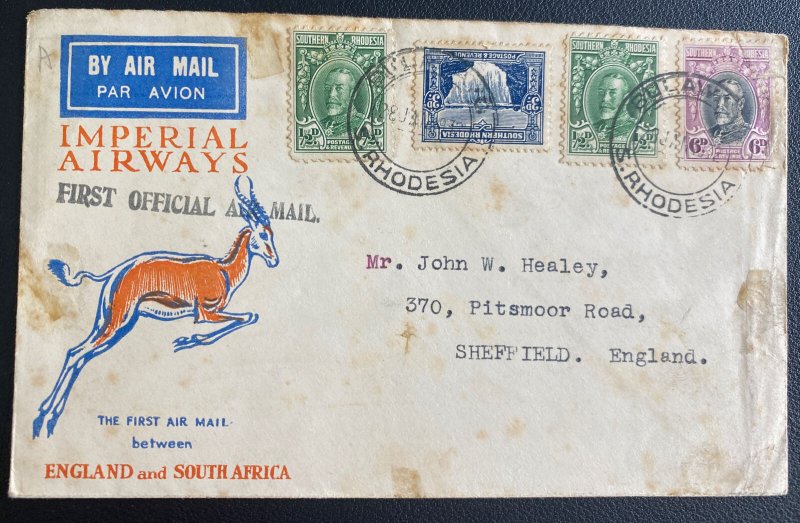 A
BY AIR MAIL
PAR AVION
IMPERIAL
AIRWAYS
FIRST OFFICIAL AIR MAIL.
SOUTHERN RHODESIA
½D ½D
POSTAGE & REVENUE
POSTAGE & REVENUE
3D 3D
SOUTHERN RHODESIA
SOUTHERN RHODESIA
½D ½D
POSTAGE & REVENUE
6D 6D
POSTAGE & REVENUE
BULAWAYO
S. RHODESIA.
BULAWAYO
S. RHODESIA.
Mr. John W. Healey,
370, Pitsmoor Road,
SHEFFIELD. England.
THE FIRST AIR MAIL
between
ENGLAND and SOUTH AFRICA